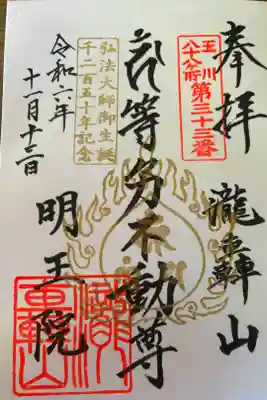 奉拝
玉川
八十八ヶ所
第三十三番
瀧轟山
等々力不動尊
弘法大師御生誕
千二百五十年記念
令和六年
十一月
明王院
瀧轟山